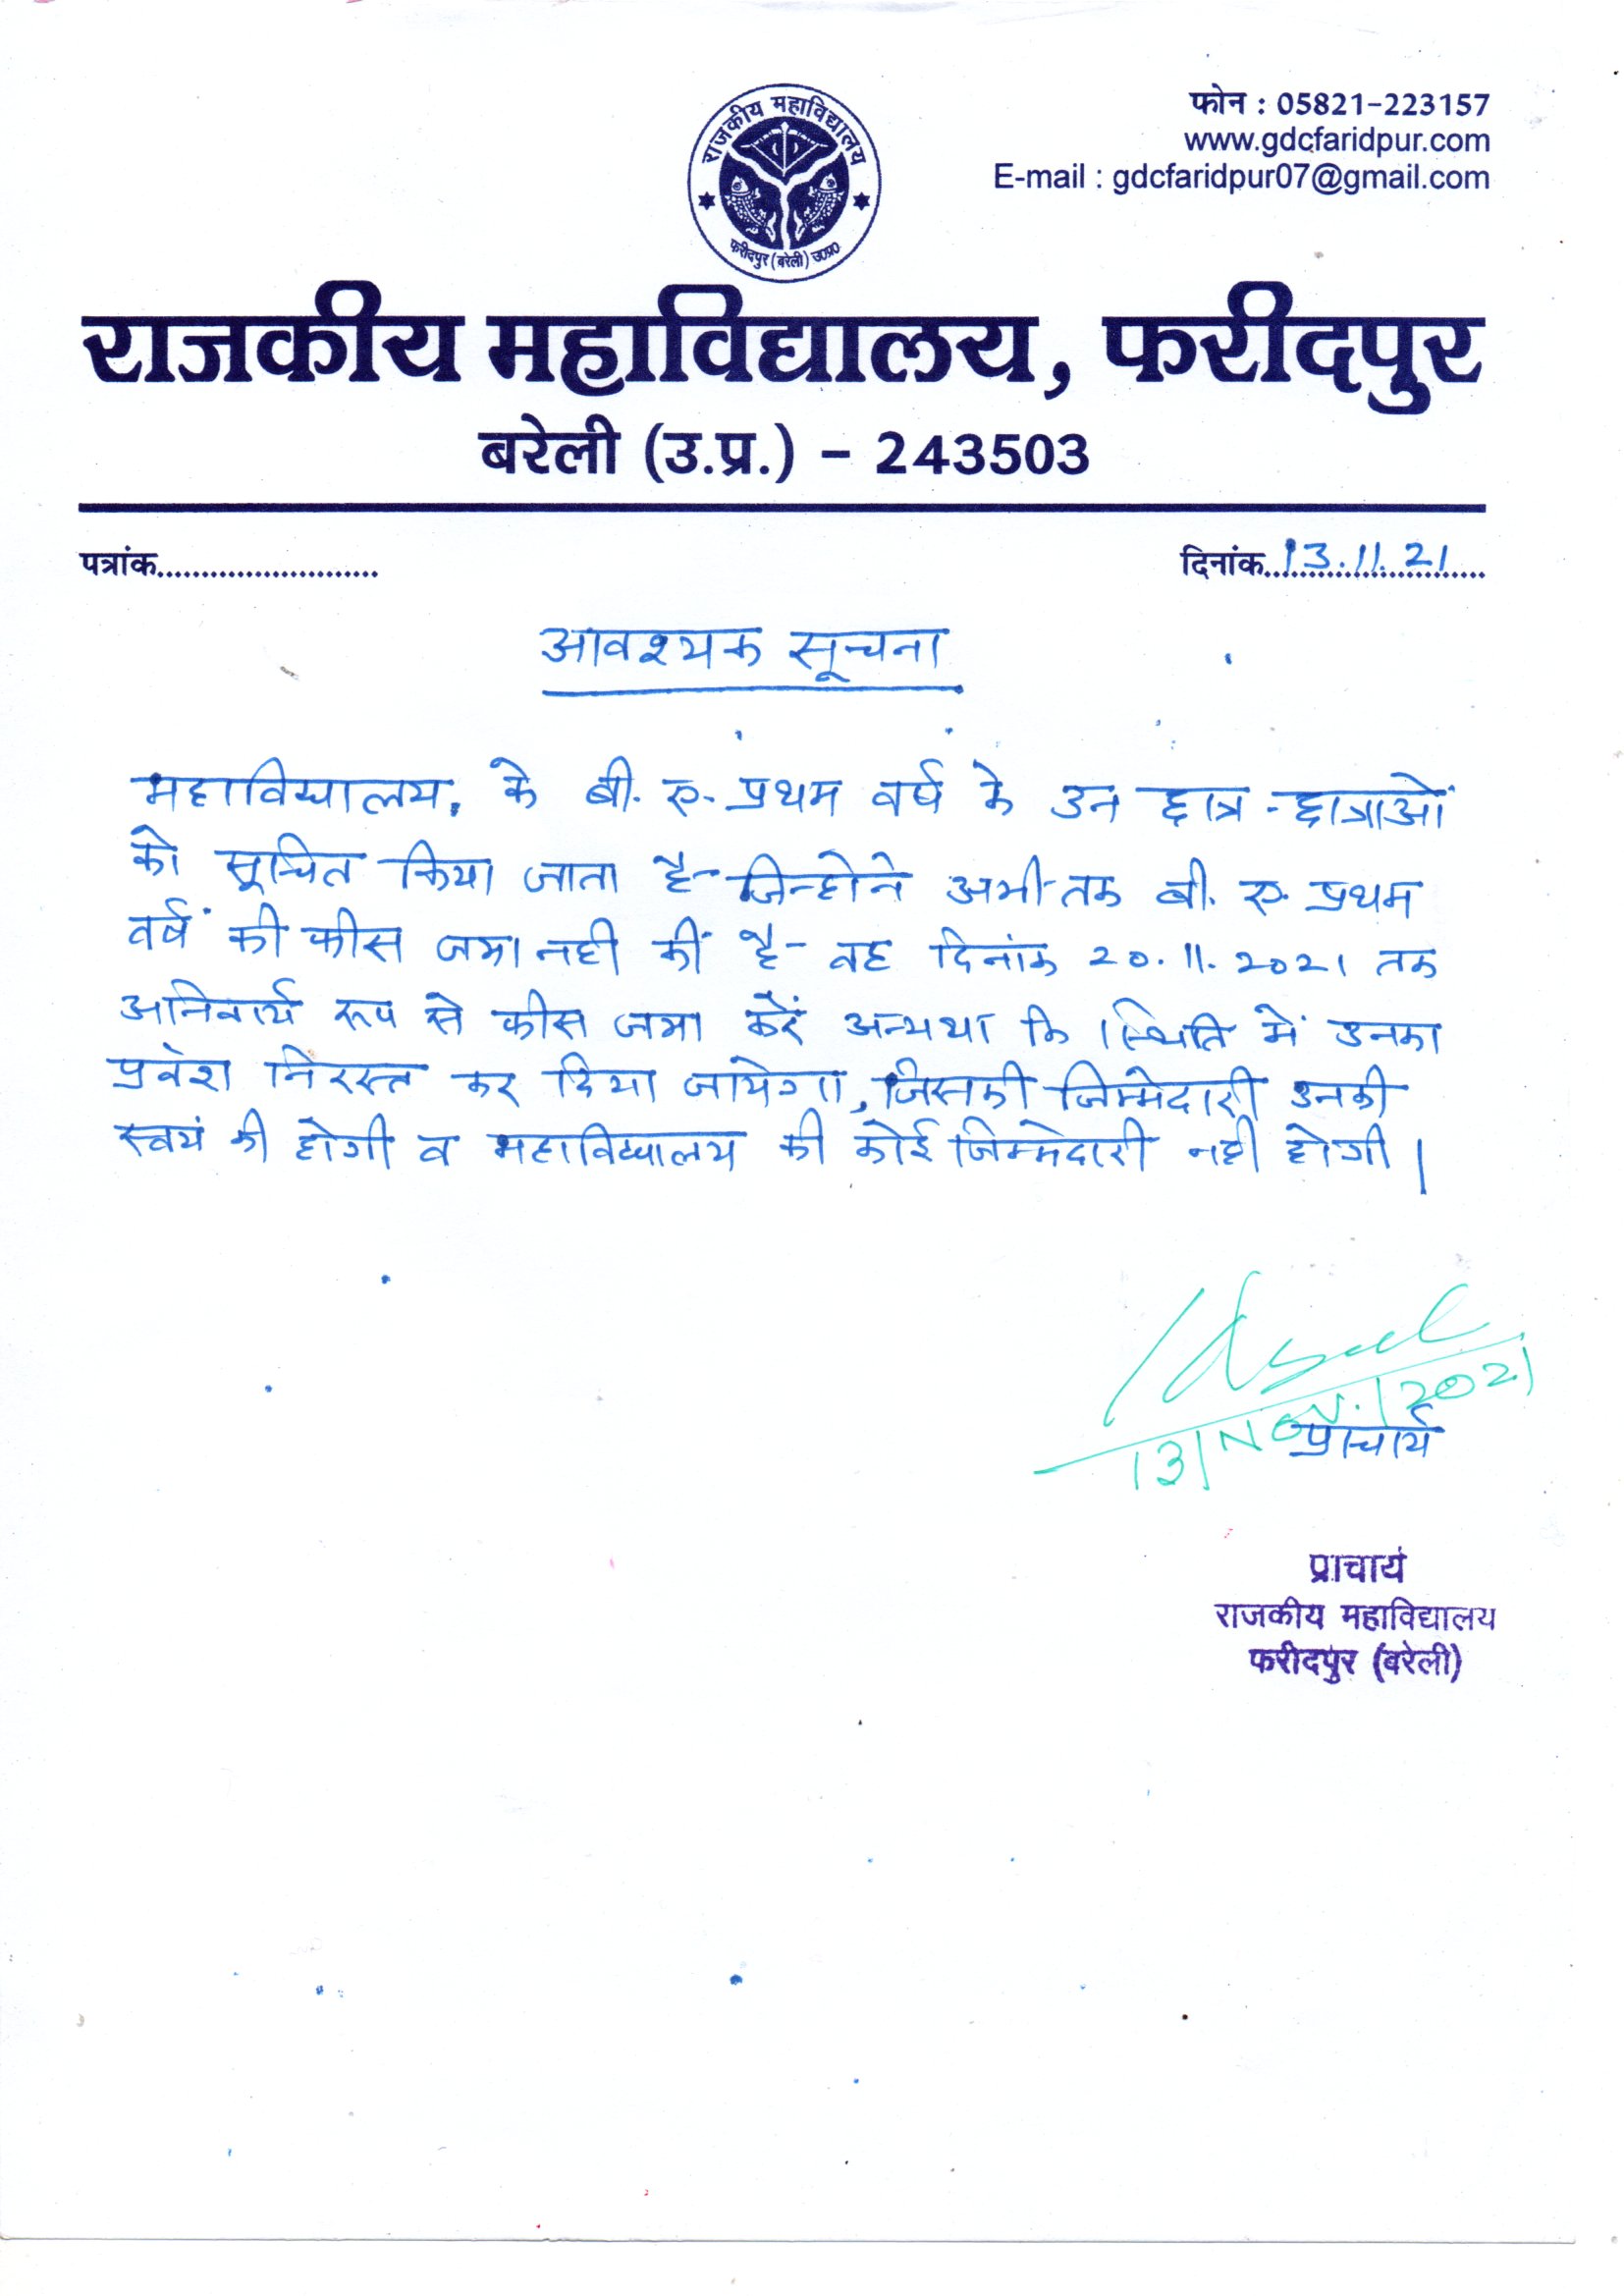 राजकीय महाविद्यालय
फरीदपुर (बरेली) उ०प्र०
फोन : 05821-223157
www.gdcfaridpur.com
E-mail : gdcfaridpur07@gmail.com
राजकीय महाविद्यालय, फरीदपुर
बरेली (उ.प्र.) - 243503
पत्रांक......................... दिनांक..13.11.21
आवश्यक सूचना
महाविद्यालय. के बी. ए. प्रथम वर्ष के उन छात्र -छात्राओं
को सूचित किया जाता है- जिन्होने अभी तक बी. ए. प्रथम
वर्ष की फीस जमा नही कीं है- वह दिनांक 20.11.2021 तक
अनिवार्य रूप से फीस जमा करें अन्यथा कि स्थिति में उनका
प्रवेश निरस्त कर दिया जायेगा, जिसकी जिम्मेदारी उनकी
स्वयं की होगी व महाविद्यालय की कोई जिम्मेदारी नही होगी।
13/Nov./2021
प्राचार्य
प्राचार्य
राजकीय महाविद्यालय
फरीदपुर (बरेली)